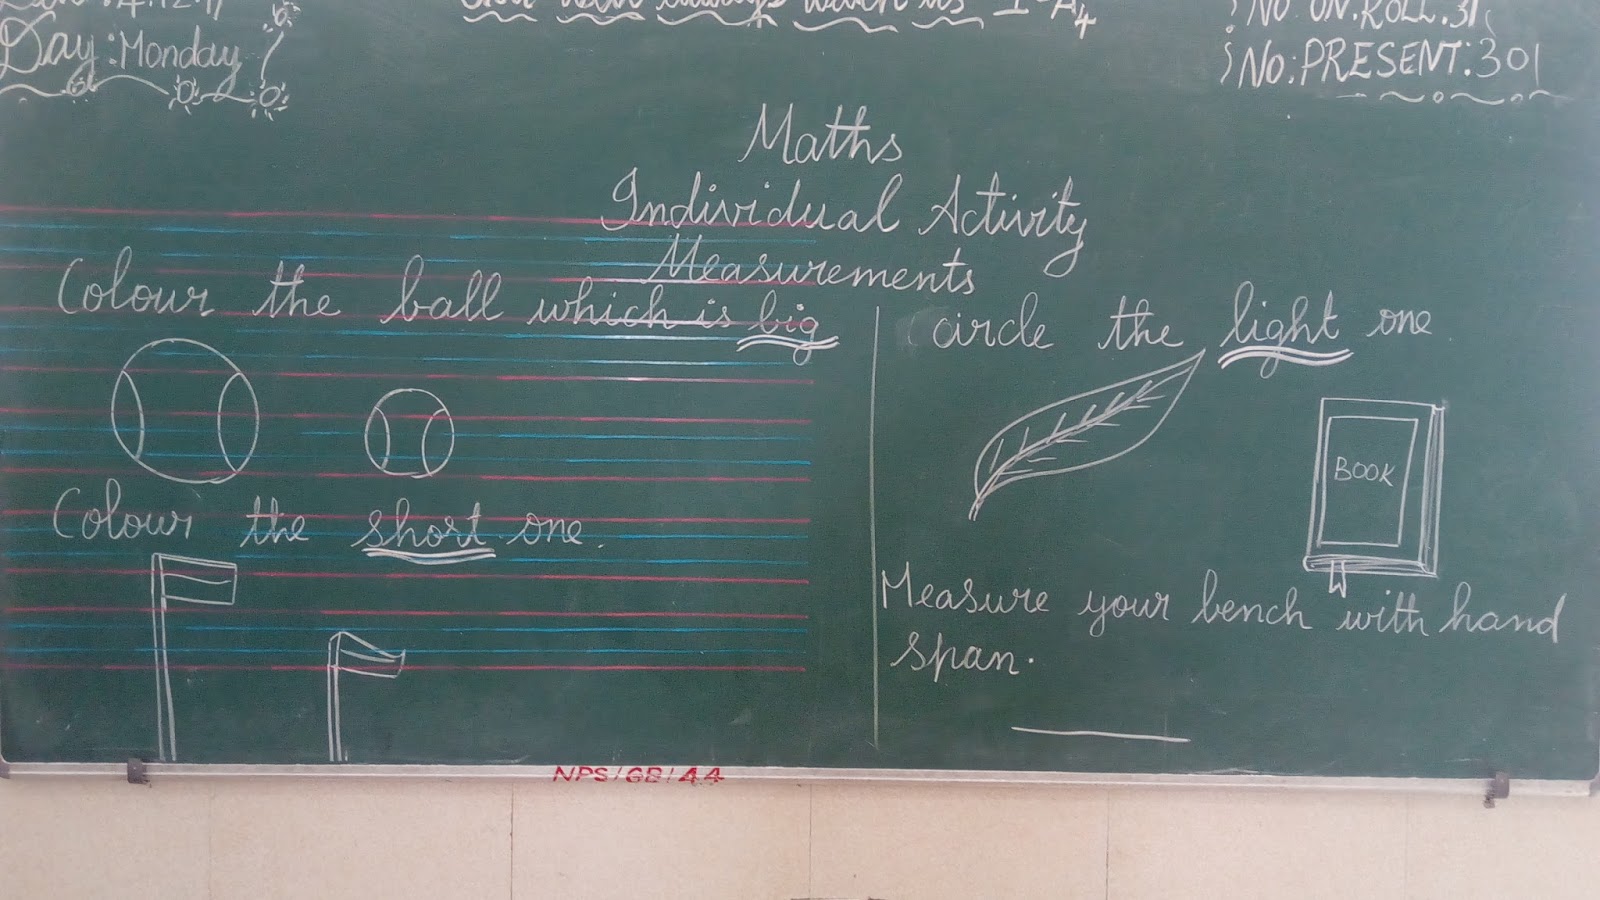 4.12.17
I-A4
No ON.ROLL.31
Day:Monday
No:PRESENT:30
Maths
Individual Activity
Measurements
Colour the ball which is big
Colour the short one.
circle the light one.
BOOK
Measure your bench with hand
span.
NPS/GB/44